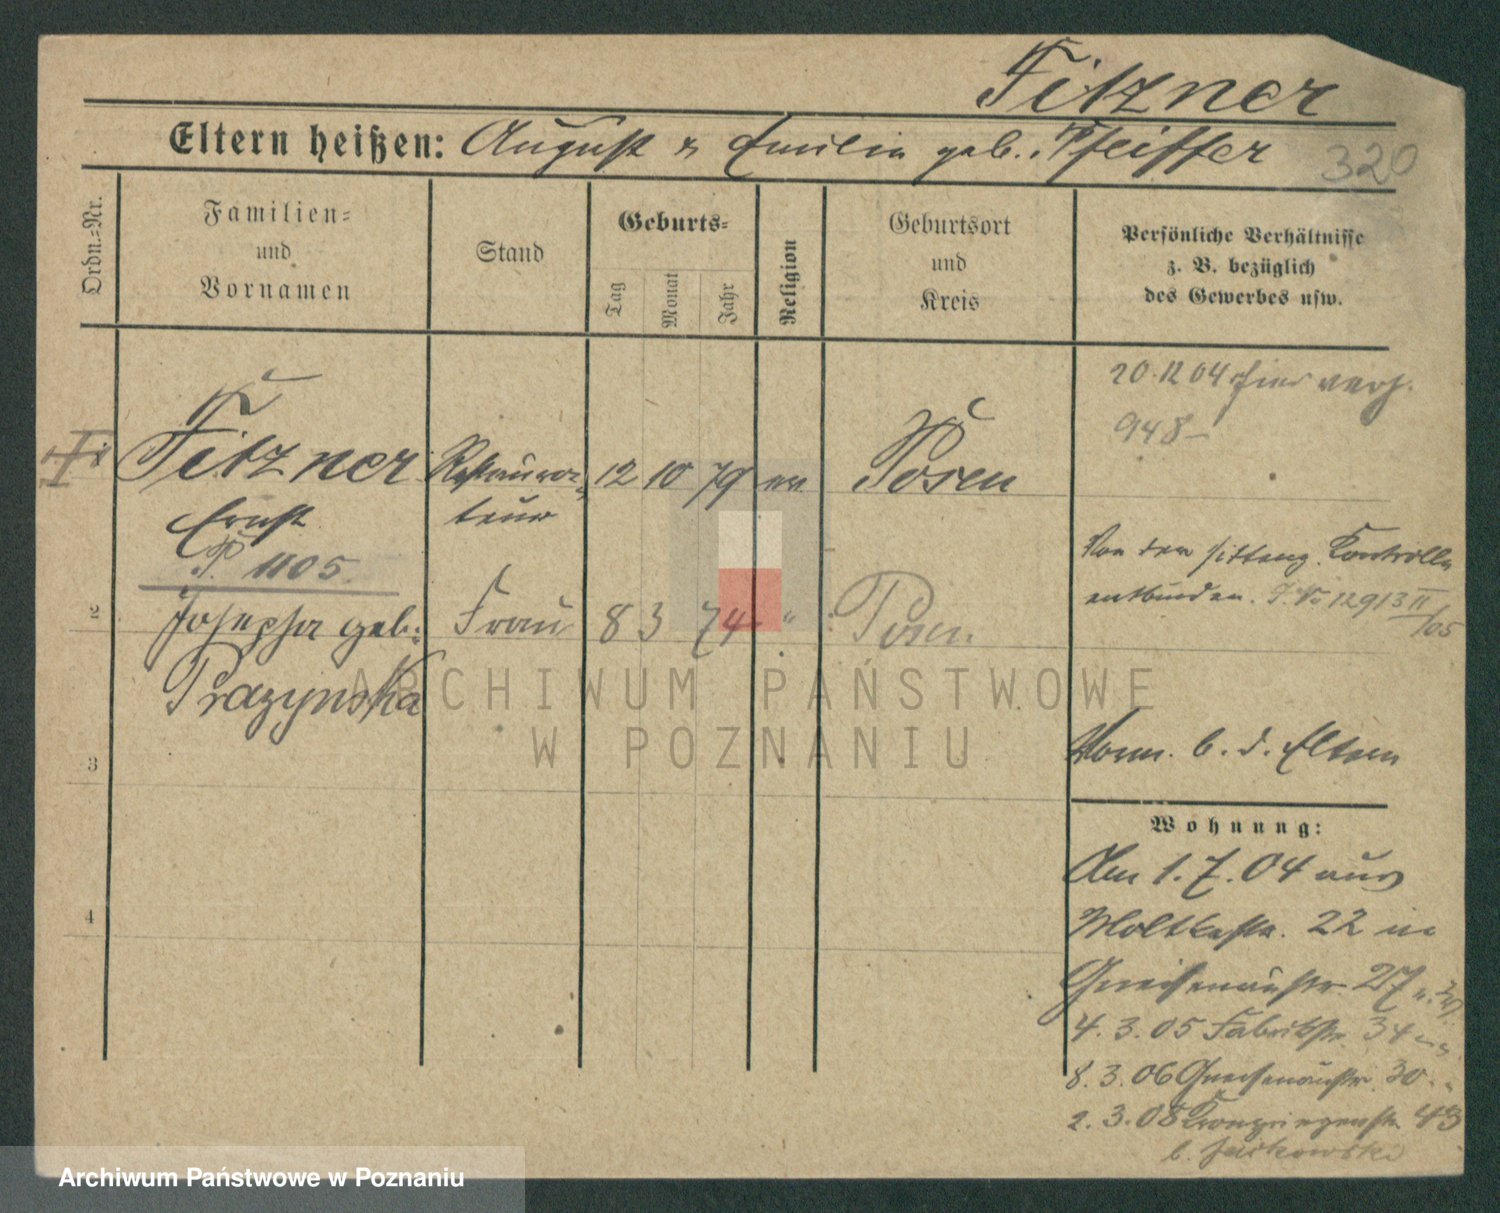 Fitzner
Eltern heißen: August u. Emilie geb. Pfeiffer
320
Ordn.-Nr.
Familien-
und
Vornamen
Stand
Geburts-
Tag
Monat
Jahr
Religion
Geburtsort
und
Kreis
Persönliche Verhältnisse
z. B. bezüglich
des Gewerbes usw.
20.12 04 hier verh.
948-
Fitzner Restaura- 12 10 79 ev. Posen
Ernst teur
P. 1105.
Von der sitteng. Kontrolle
entbunden. J. No 12913 II/05
2 Josepha geb. Frau 8 3 74 " Posen.
Prazynska
ARCHIWUM PAŃSTWOWE
W POZNANIU
3
Vorm. b. d. Eltern
Wohnung:
Am 1.7.04 aus
Moltkestr. 22 in
Gneisenaustr. 27
4
4.3.05 Fabrikstr. 34
8.3.06 Gneisenaustr. 30
2.3.08 Kronprinzenstr. 43
b. Jackowski
Archiwum Państwowe w Poznaniu